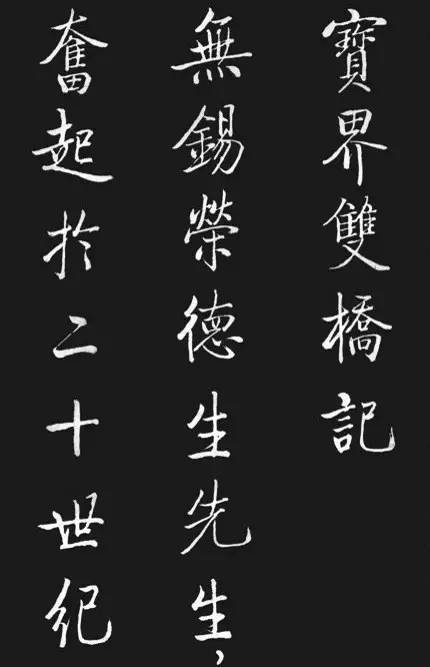 寶界雙橋記
無錫榮德生先生,
奮起於二十世紀